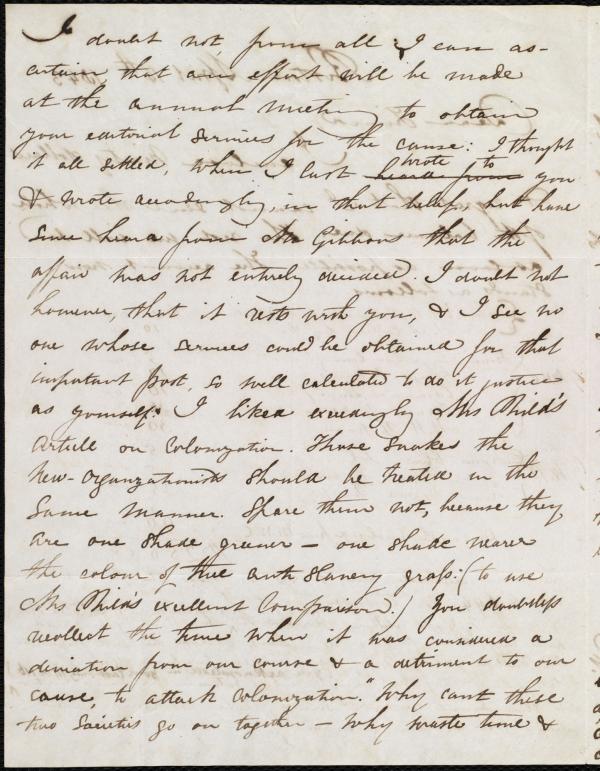 I doubt not, from all I can as-
certain, that an effort will be made
at the annual meeting to obtain
your editorial services for the cause: I thought
it all settled, when I last heard from wrote to you
& wrote accordingly, in that belief, but have
since heard from Mr Gibbons that the
affair was not entirely decided. I doubt not
however, that it rests with you, & I see no
one whose services could be obtained for that
important post, so well calculated to do it justice
as yourself. I liked exceedingly Mrs Child's
article on Colonization. Those snakes the
New-Organizationists should be treated in the
same manner. Spare them not, because they
are one shade greener — one shade nearer
the colour of true anti slavery grass: (to use
Mrs Child's excellent comparison.) You doubtless
recollect the time when it was considered a
deviation from our course & a detriment to our
cause, to attack Colonization. "Why cant these
two Societies go on together — Why waste time &